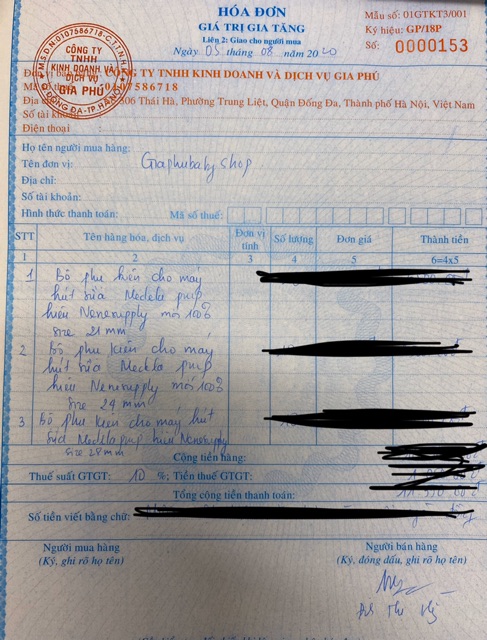 HÓA ĐƠN
GIÁ TRỊ GIA TĂNG
Liên 2: Giao cho người mua
Ngày 05 tháng 08 năm 2020
Mẫu số: 01GTKT3/001
Ký hiệu: GP/18P
Số: 0000153
M.S.D.N:0107586718-C.T.T.N.H.H
CÔNG TY
TNHH
KINH DOANH VÀ
DỊCH VỤ
GIA PHÚ
Q. ĐỐNG ĐA-TP HÀ NỘI
CÔNG TY TNHH KINH DOANH VÀ DỊCH VỤ GIA PHÚ
0107586718
306 Thái Hà, Phường Trung Liệt, Quận Đống Đa, Thành phố Hà Nội, Việt Nam
Số tài
Điện thoại
Họ tên người mua hàng:
Tên đơn vị: Giaphubaby shop
Địa chỉ:
Số tài khoản:
Hình thức thanh toán: Mã số thuế:
STT Tên hàng hóa, dịch vụ Đơn vị tính Số lượng Đơn giá Thành tiền
1 2 3 4 5 6=4x5
1 Bộ phụ kiện cho máy
hút sữa Medela pump
hiệu Nenesupply mới 100%
size 21 mm
2 Bộ phụ kiện cho máy
hút sữa Medela pump
hiệu Nenesupply mới 100%
size 24 mm
3 Bộ phụ kiện cho máy hút
sữa Medela pump hiệu Nenesupply
size 28 mm
Cộng tiền hàng:
Thuế suất GTGT: 10 %; Tiền thuế GTGT:
Tổng cộng tiền thanh toán:
Số tiền viết bằng chữ:
Người mua hàng
(Ký, ghi rõ họ tên)
Người bán hàng
(Ký, đóng dấu, ghi rõ họ tên)